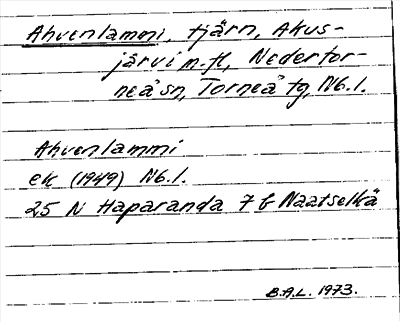 Ahvenlammi, tjärn, Akus-
järvi m.fl., Nedertor-
neå sn, Torneå tg, Nb.l.
Ahvenlammi
ek (1949) Nb.l.
25 N Haparanda 7 b Naatselkä
B.A.L. 1973.